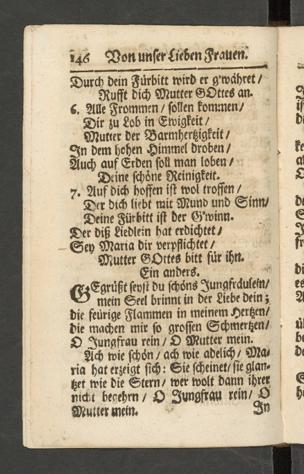 146 Von unser Lieben Frauen.
Durch dein Fürbitt wird er g'währet /
Rufft dich Mutter GOttes an.
6. Alle Frommen / sollen kommen /
Dir zu Lob in Ewigkeit /
Mutter der Barmhertzigkeit /
In dem hohen Himmel droben /
Auch auf Erden soll man loben /
Deine schöne Reinigkeit.
7. Auf dich hoffen ist wol troffen /
Der dich liebt mit Mund und Sinn /
Deine Fürbitt ist der G'winn.
Der diß Liedlein hat erdichtet /
Sey Maria dir verpflichtet /
Mutter GOttes bitt für ihn.
Ein anders.
GEgrüßt seyst du schöns Jungfräulein /
mein Seel brinnt in der Liebe dein ;
die feürige Flammen in meinem Hertzen /
die machen mir so grossen Schmertzen /
O Jungfrau rein / O Mutter mein.
Ach wie schön / ach wie adelich / Ma-
ria hat erzeigt sich : Sie scheinet / sie glan-
tzet wie die Stern / wer wolt dann ihrer
nicht begehrn / O Jungfrau rein / O
Mutter mein.
In